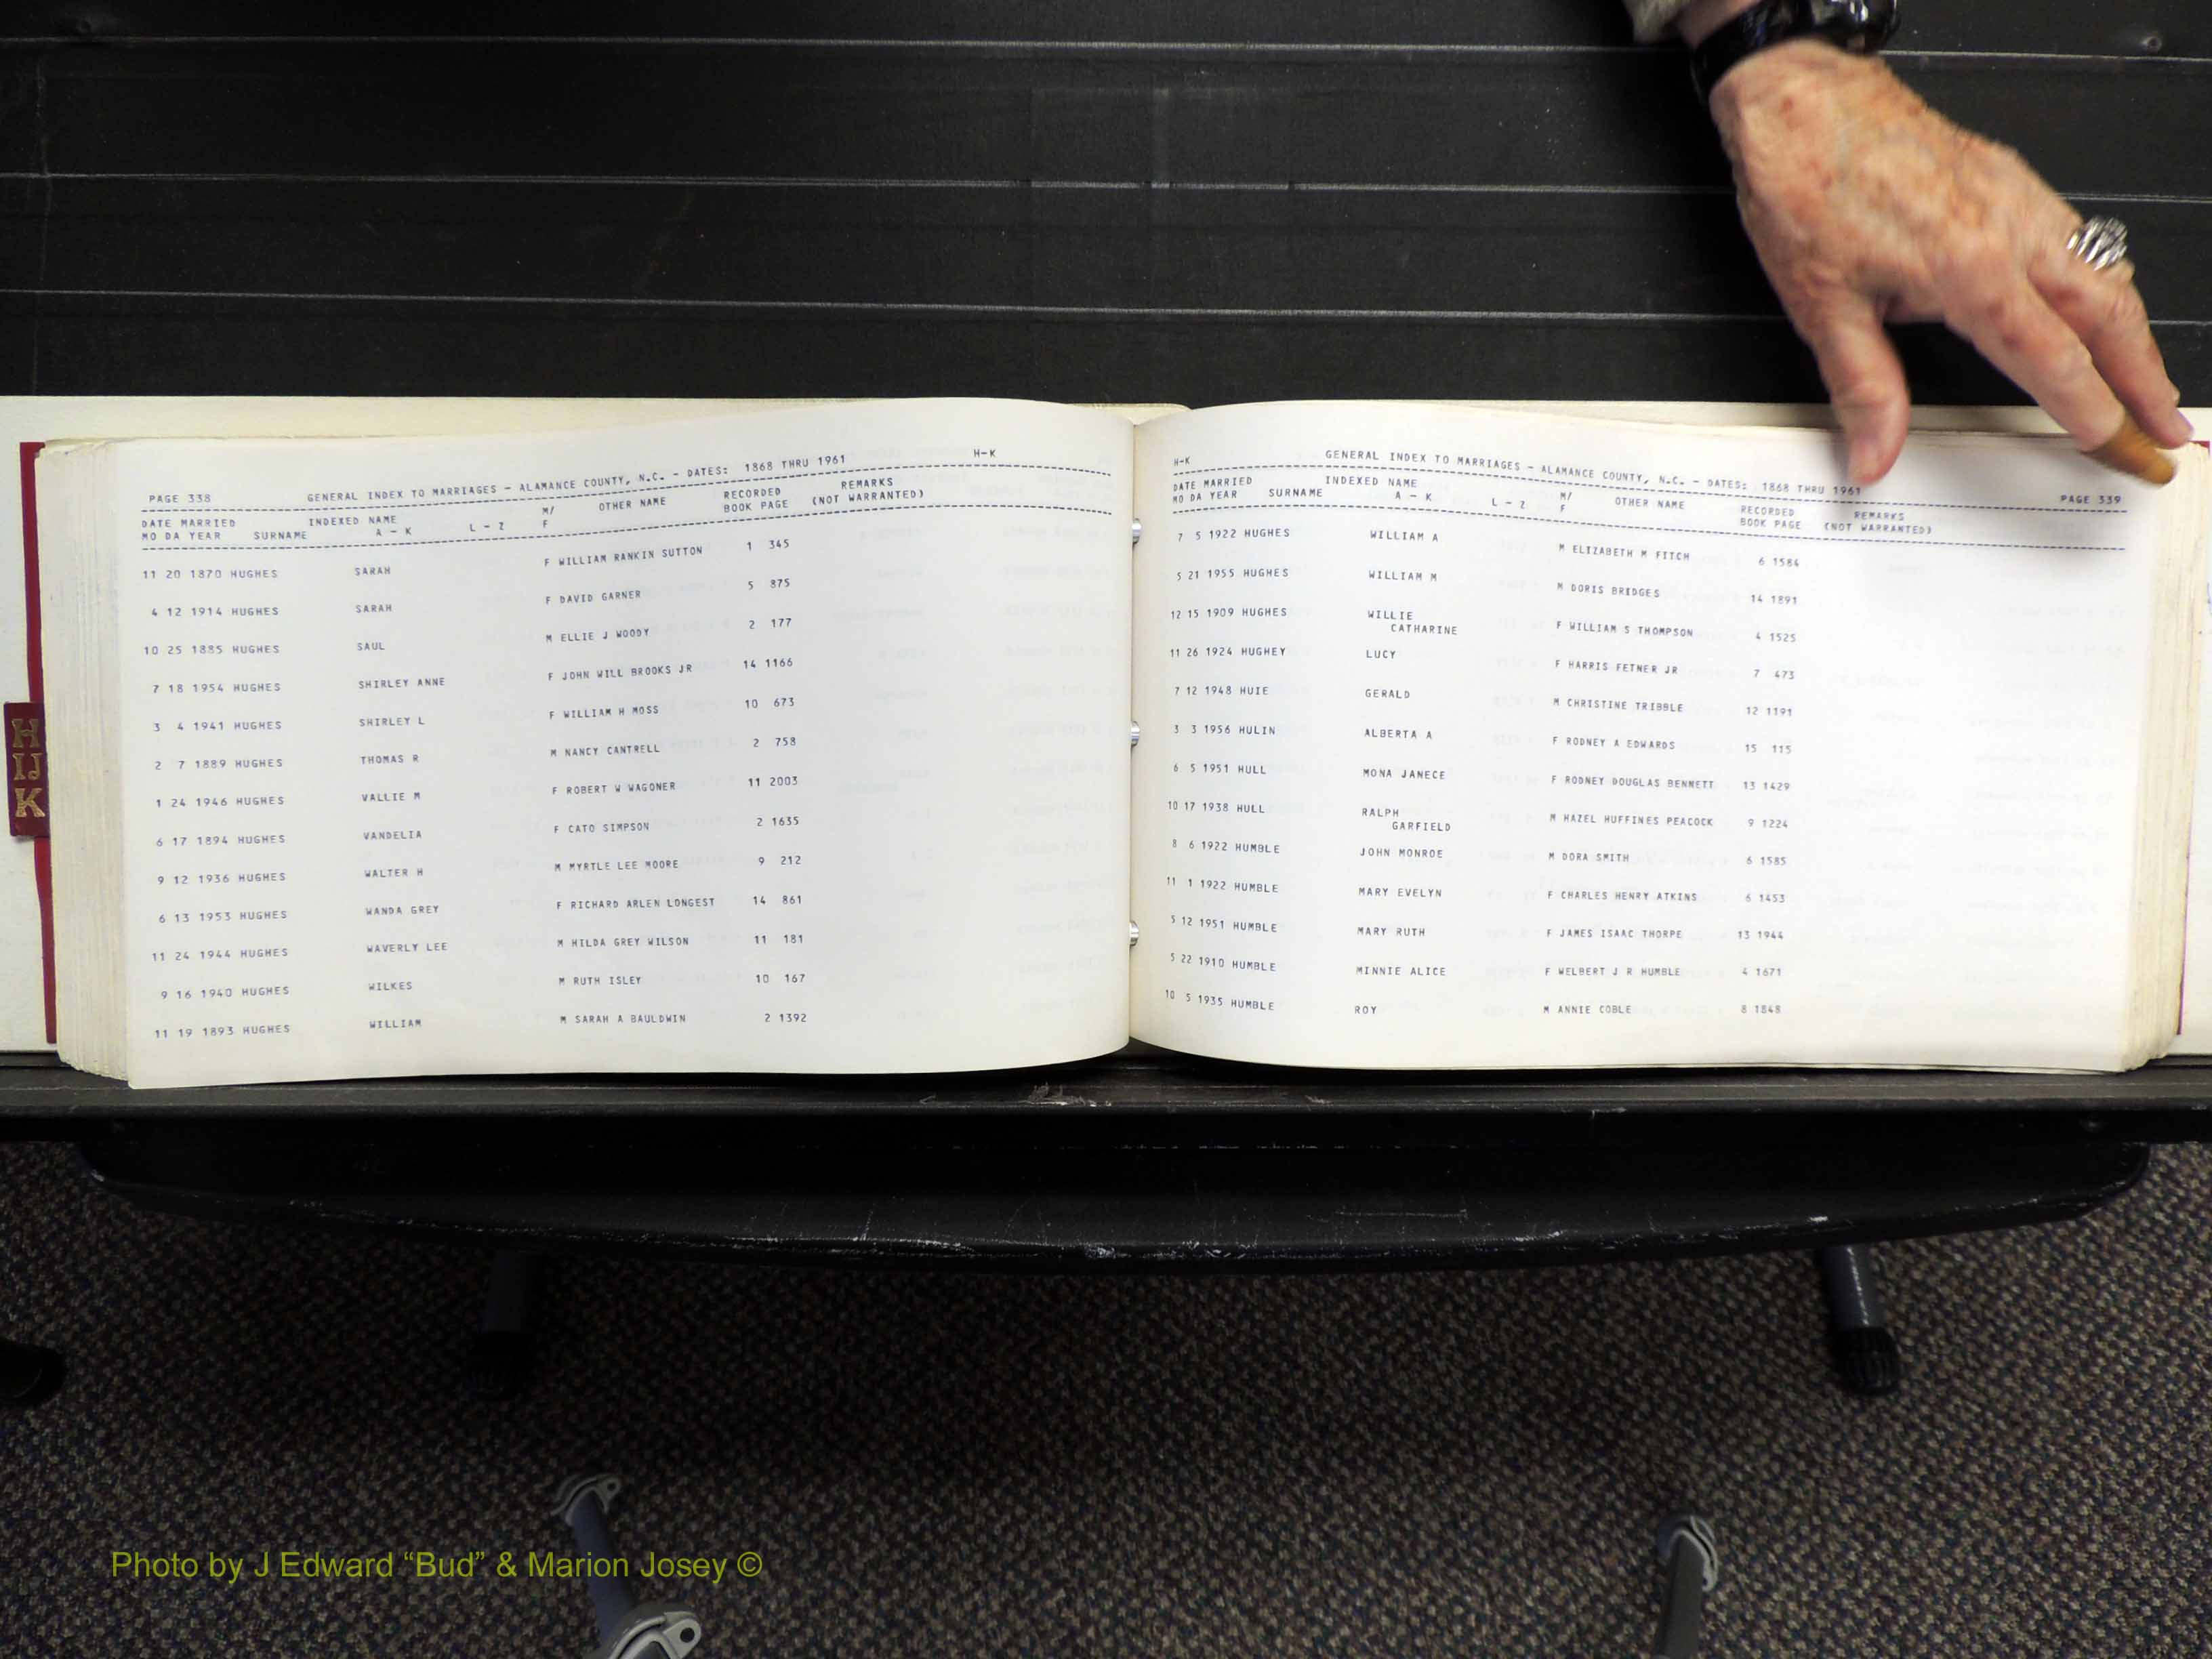 PAGE 338 GENERAL INDEX TO MARRIAGES - ALAMANCE COUNTY, N.C. - DATES: 1868 THRU 1961 H-K
DATE MARRIED INDEXED NAME M/ OTHER NAME RECORDED REMARKS
MO DA YEAR SURNAME A - K L - Z F BOOK PAGE (NOT WARRANTED)
11 20 1870 HUGHES SARAH F WILLIAM RANKIN SUTTON 1 345
4 12 1914 HUGHES SARAH F DAVID GARNER 5 875
10 25 1885 HUGHES SAUL M ELLIE J WOODY 2 177
7 18 1954 HUGHES SHIRLEY ANNE F JOHN WILL BROOKS JR 14 1166
3 4 1941 HUGHES SHIRLEY L F WILLIAM H MOSS 10 673
2 7 1889 HUGHES THOMAS R M NANCY CANTRELL 2 758
1 24 1946 HUGHES VALLIE M F ROBERT W WAGONER 11 2003
6 17 1894 HUGHES VANDELIA F CATO SIMPSON 2 1635
9 12 1936 HUGHES WALTER H M MYRTLE LEE MOORE 9 212
6 13 1953 HUGHES WANDA GREY F RICHARD ARLEN LONGEST 14 861
11 24 1944 HUGHES WAVERLY LEE M HILDA GREY WILSON 11 181
9 16 1940 HUGHES WILKES M RUTH ISLEY 10 167
11 19 1893 HUGHES WILLIAM M SARAH A BAULDWIN 2 1392
H-K GENERAL INDEX TO MARRIAGES - ALAMANCE COUNTY, N.C. - DATES: 1868 THRU 1961 PAGE 339
DATE MARRIED INDEXED NAME M/ OTHER NAME RECORDED REMARKS
MO DA YEAR SURNAME A - K L - Z F BOOK PAGE (NOT WARRANTED)
7 5 1922 HUGHES WILLIAM A M ELIZABETH M FITCH 6 1584
5 21 1955 HUGHES WILLIAM M M DORIS BRIDGES 14 1891
12 15 1909 HUGHES WILLIE F WILLIAM S THOMPSON 4 1525
CATHARINE
11 26 1924 HUGHEY LUCY F HARRIS FETNER JR 7 473
7 12 1948 HUIE GERALD M CHRISTINE TRIBBLE 12 1191
3 3 1956 HULIN ALBERTA A F RODNEY A EDWARDS 15 115
6 5 1951 HULL MONA JANECE F RODNEY DOUGLAS BENNETT 13 1429
10 17 1938 HULL RALPH M HAZEL HUFFINES PEACOCK 9 1224
GARFIELD
8 6 1922 HUMBLE JOHN MONROE M DORA SMITH 6 1585
11 1 1922 HUMBLE MARY EVELYN F CHARLES HENRY ATKINS 6 1453
5 12 1951 HUMBLE MARY RUTH F JAMES ISAAC THORPE 13 1944
5 22 1910 HUMBLE MINNIE ALICE F WELBERT J R HUMBLE 4 1671
10 5 1935 HUMBLE ROY M ANNIE COBLE 8 1848
H
IJ
K
Photo by J Edward “Bud” & Marion Josey ©